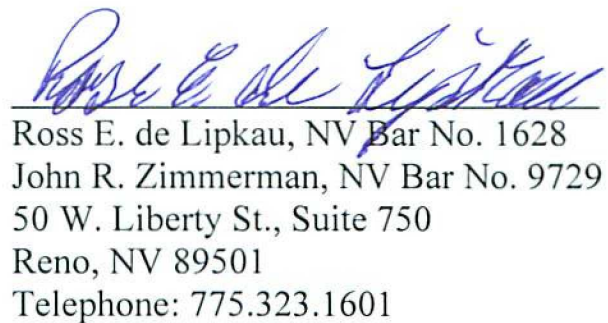 Ross E. de Lipkau
Ross E. de Lipkau, NV Bar No. 1628
John R. Zimmerman, NV Bar No. 9729
50 W. Liberty St., Suite 750
Reno, NV 89501
Telephone: 775.323.1601